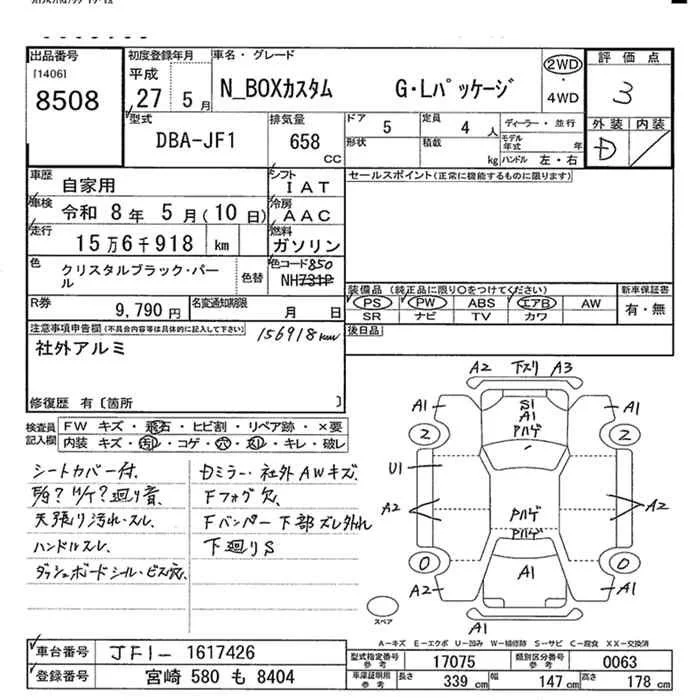 出品番号
[1406]
8508
初度登録年月
平成
27 5月
車名・グレード
N_BOXカスタム G・Lパッケージ
2WD
・
4WD
評価点
3
外装 内装
D
型式
DBA-JF1
排気量
658
CC
ドア
5
定員
4 人
ディーラー・並行
形状
積載
kg
モデル
年式
年
ハンドル 左・右
車歴
自家用
シフト
IAT
セールスポイント(正常に機能するものに限ります)
車検
令和 8年 5月(10日)
冷房
AAC
走行
15万6千918 km
燃料
ガソリン
色
クリスタルブラック・パール
色替
色コード 850
NH731P
装備品 (純正品に限り○をつけてください)
新車保証書
PS PW ABS エアB AW
SR ナビ TV カワ
有・無
R券
9,790 円
名変通知期限
月 日
後日品
注意事項申告欄(不具合内容等は具体的に記入して下さい)
156918km
社外アルミ
修復歴 有〔箇所 〕
検査員
記入欄
FW キズ・飛石・ヒビ割・リペア跡・×要
内装 キズ・汚れ・コゲ・穴・スレ・キレ・破レ
シートカバー付、
Dミラー・社外AWキズ、
廻り音、
Fフォグ欠、
天張り汚れ・スレ、
Fバンパー下部ズレ外れ
ハンドルスレ、
下廻りS
ダッシュボードシール・ビス穴、
A2 下スリ A3
A1 S1 A1
A1
Aハゲ
2 2
U1
A2 Aハゲ A2
Aハゲ
0 0
A1
A2 A1
A1
スペア
A-キズ E-エクボ U-凹み W-補修跡 S-サビ C-腐食 XX-交換済
車台番号
JF1- 1617426
型式指定番号
参考
17075
類別区分番号
参考
0063
登録番号
宮崎 580 も 8404
車庫証明用
参考
長さ
339 cm
幅
147 cm
高さ
178 cm